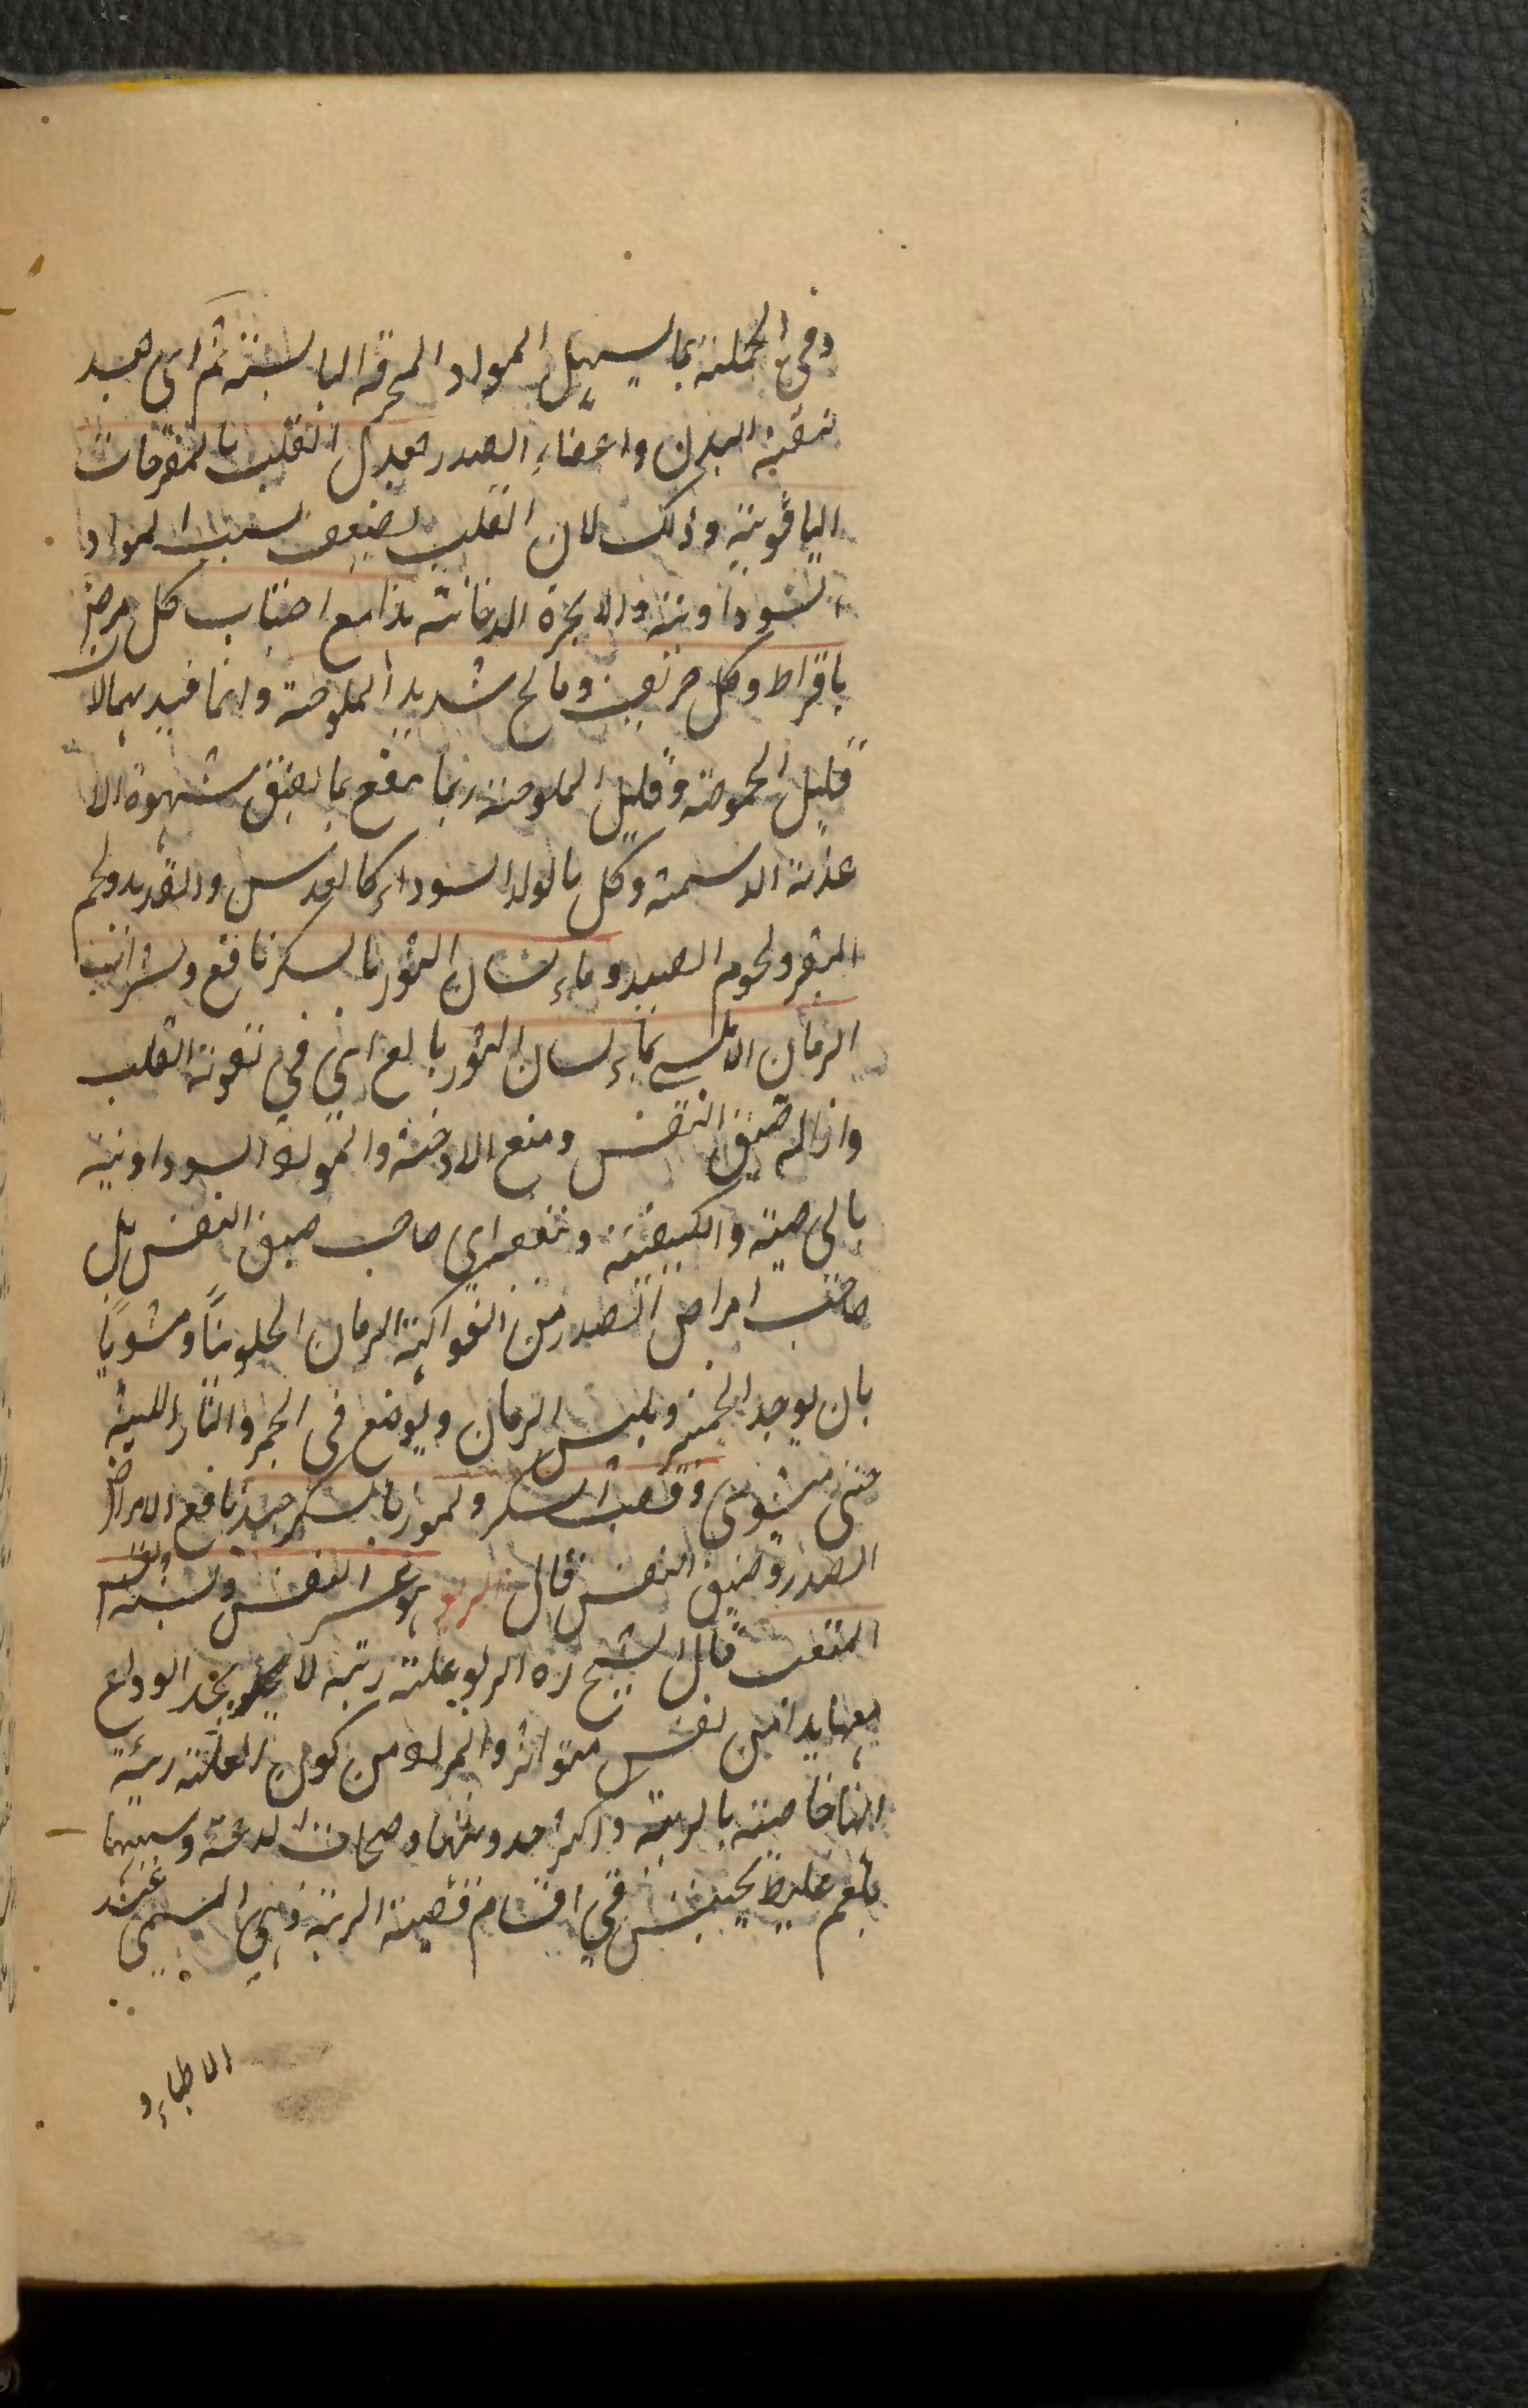 وفى الجملة بما يسهل المواد المحرقة اليابسة ثم اى بعد
تنقية البدن واعضاء الصدر يعدل القلب بالمفرحات
الياقوتية وذلك لان القلب يضعف بسبب المواد
السوداوية والابخرة الدخانية هذا مع اجتناب كل حامض
بافراط وكل حريف ومالح شديد الملوحة وانما قيد بهما لان
قليل الحموضة وقليل الملوحة ربما ينفع بما يفتق شهوة الا
غذية الدسمة وكل ما يولد السوداء كالعدس والقديد ولحم
البقر ولحوم الصيد وماء لسان الثور بالسكر نافع وشراب
الرمان الاملسى بماء لسان الثور بالغ اى فى تقوية القلب
وازالة ضيق النفس ومنع الادخنة والمواد السوداوية
بالخاصية والكيفية وينفعه اى صاحب ضيق النفس بل
صاحب امراض الصدر من الفواكه الرمان الحلو نيًا ومشويًا
بان يوجد الخمير ويلبس الرمان ويوضع فى الجمر والنار اللينة
حتى يشوى وقصب السكر والموز بالسكر جيد نافع لامراض
الصدر وضيق النفس قال الربو هو عسر النفس يشبه نفس
المتعب قال الشيخ ره الربو علة رئية لا يجد الوداع
معها بدا من نفس متواتر والمراد من كون العلة رئية
انها خاصية بالرية واكثر حدوثها وصحابة لدعة وسببها
بلغم غليظ يحتبس فى اقسام قصبة الرية وهى المسمى عند
الاطباء و